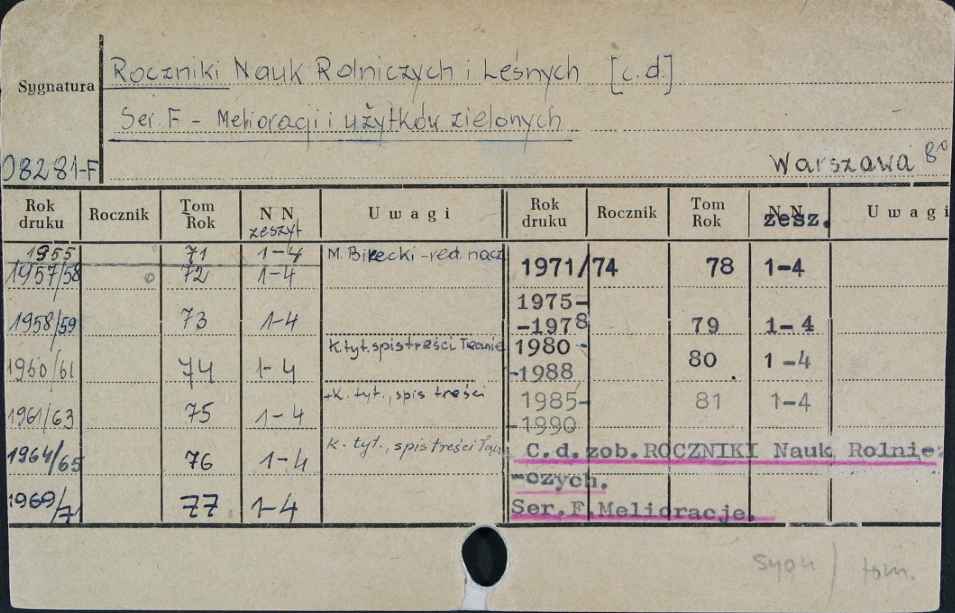 Sygnatura
Roczniki Nauk Rolniczych i Leśnych [c.d.]
Ser. F - Melioracji i użytków zielonych
08281-F
Warszawa 8°
Rok druku Rocznik Tom Rok N N zeszyt Uwagi
1955 71 1-4 M. Birecki - red. nacz
1957/58 72 1-4
1958/59 73 1-4
1960/61 74 1-4 K. tyt. spis treści
1961/63 75 1-4 +K. tyt., spis treści
1964/65 76 1-4 K. tyt., spis treści
1969/71 77 1-4
Rok druku Rocznik Tom Rok N N zesz. Uwagi
1971/74 78 1-4
1975-
-1978 79 1-4
1980-
-1988 80 1-4
1985-
-1990 81 1-4
C.d. zob. ROCZNIKI Nauk Rolni-
-czych.
Ser. F. Melioracje.
sygn / tom.